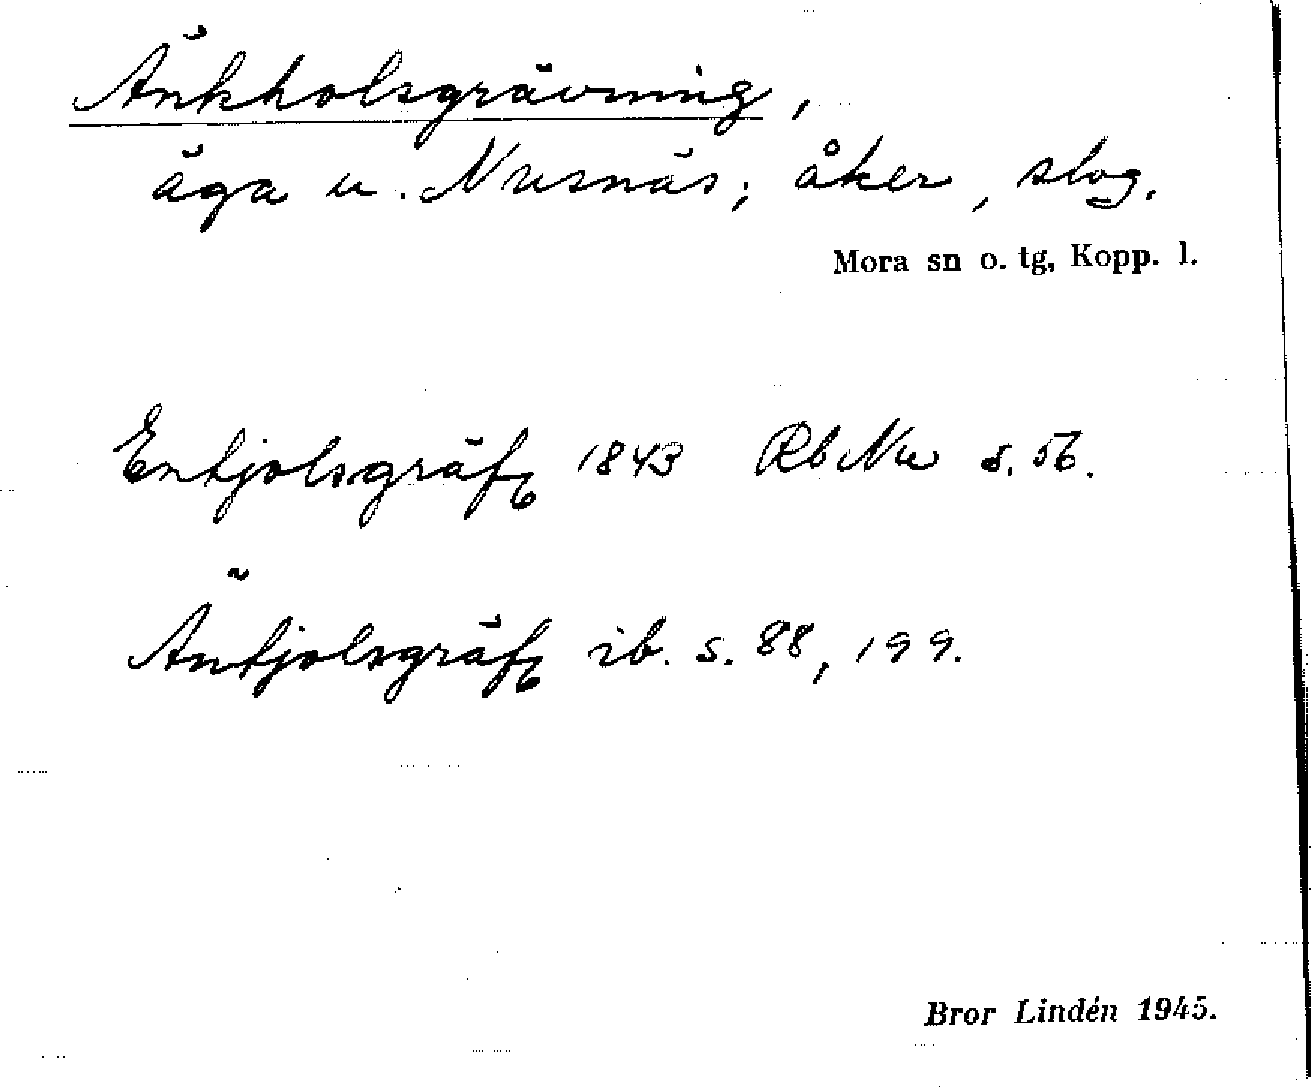 Änkholsgrävning,
äga u. Nusnäs; åker, slog.
Mora sn o. tg, Kopp. l.
Enkjolsgräf 1843 Rb Nu s. 56.
Änkjolsgräf ib. s. 88, 199.
Bror Lindén 1945.